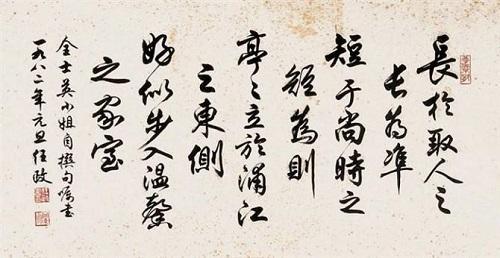 長於取人之
長為準
短于尚時之
短為則
亭亭立於浦江
之東側
好似步入温馨
之家室
金士英小姐自撰句嘱書
一九八二年元旦任政